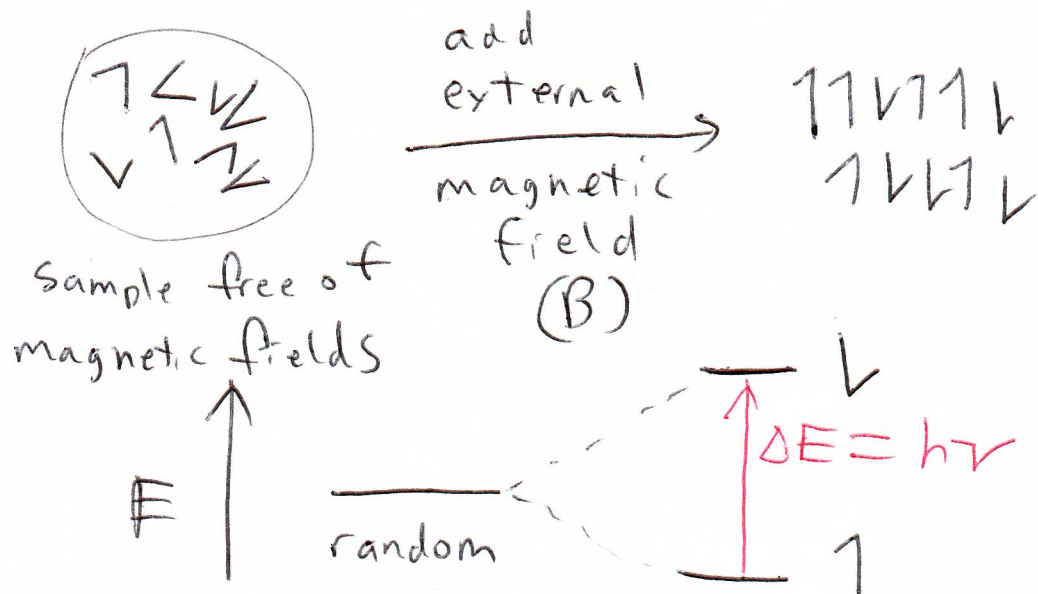 add
external
magnetic
field
(B)
sample free of
magnetic fields
E
random
ΔE = hν